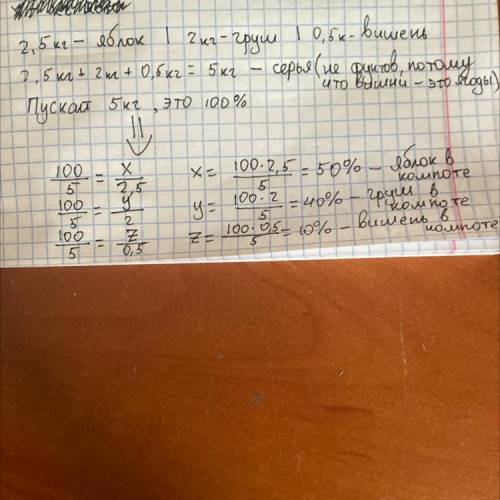 2,5кг – яблок | 2кг – груш | 0,5к- вишень
2,5кг + 2кг + 0,5кг = 5кг – серья (не фуктов, потому
что вишни – это ягоды)
Пускай 5кг, это 100%
⇓
100/5 = x/2,5 x = 100·2,5/5 = 50% – яблок в компоте
100/5 = y/2 y = 100·2/5 = 40% – груш в компоте
100/5 = z/0,5 z = 100·0,5/5 = 10% – вишень в компоте